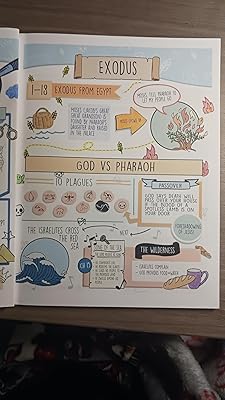 EXODUS
1-18
EXODUS FROM EGYPT
MOSES (JACOB'S GREAT
GREAT GRANDSON) IS
FOUND BY PHARAOH'S
DAUGHTER AND RAISED
IN THE PALACE
MOSES GROWS UP
MOSES, TELL PHARAOH TO
LET MY PEOPLE GO
GOD VS PHARAOH
10 PLAGUES
PASSOVER
GOD SAYS DEATH WILL
PASS OVER YOUR HOUSE
IF THE BLOOD OF A
SPOTLESS LAMB IS ON
YOUR DOOR
FORESHADOWING
OF JESUS!
THE ISRAELITES CROSS
THE RED
SEA
NEXT
CH 15
THE WILDERNESS
- ISRAELITES COMPLAIN
- GOD PROVIDES FOOD + WATER